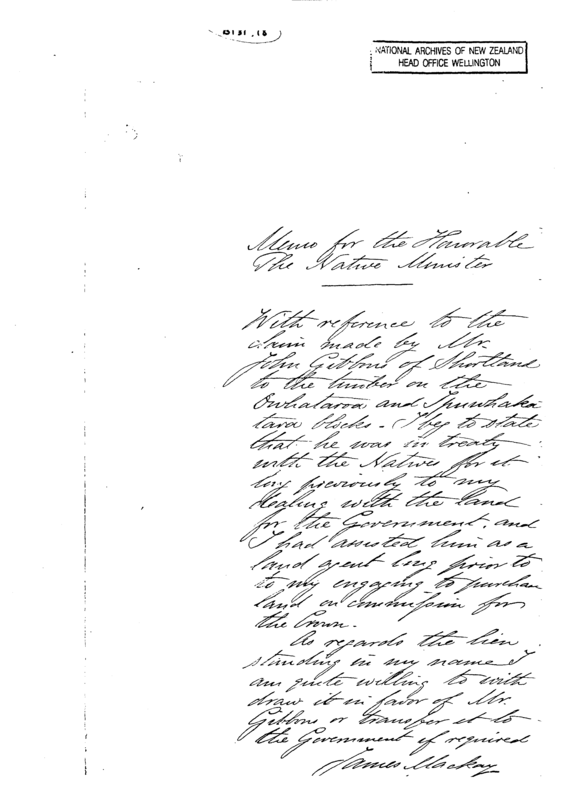 D131.18
NATIONAL ARCHIVES OF NEW ZEALAND
HEAD OFFICE WELLINGTON
Memo for the Honorable
The Native Minister
With reference to the
claim made by Mr.
John Gibbons of Shortland
to the timber on the
Owhataroa and Ipuwhaka
tara blocks - I beg to state
that he was in treaty
with the Natives for it
long previously to my
dealing with the land
for the Government, and
I had assisted him as a
land agent long prior to
to my engaging to purchase
land on commission for
the Crown.
As regards the lien
standing in my name I
am quite willing to with
draw it in favor of Mr.
Gibbons or transfer it to
the Government if required
James Mackay